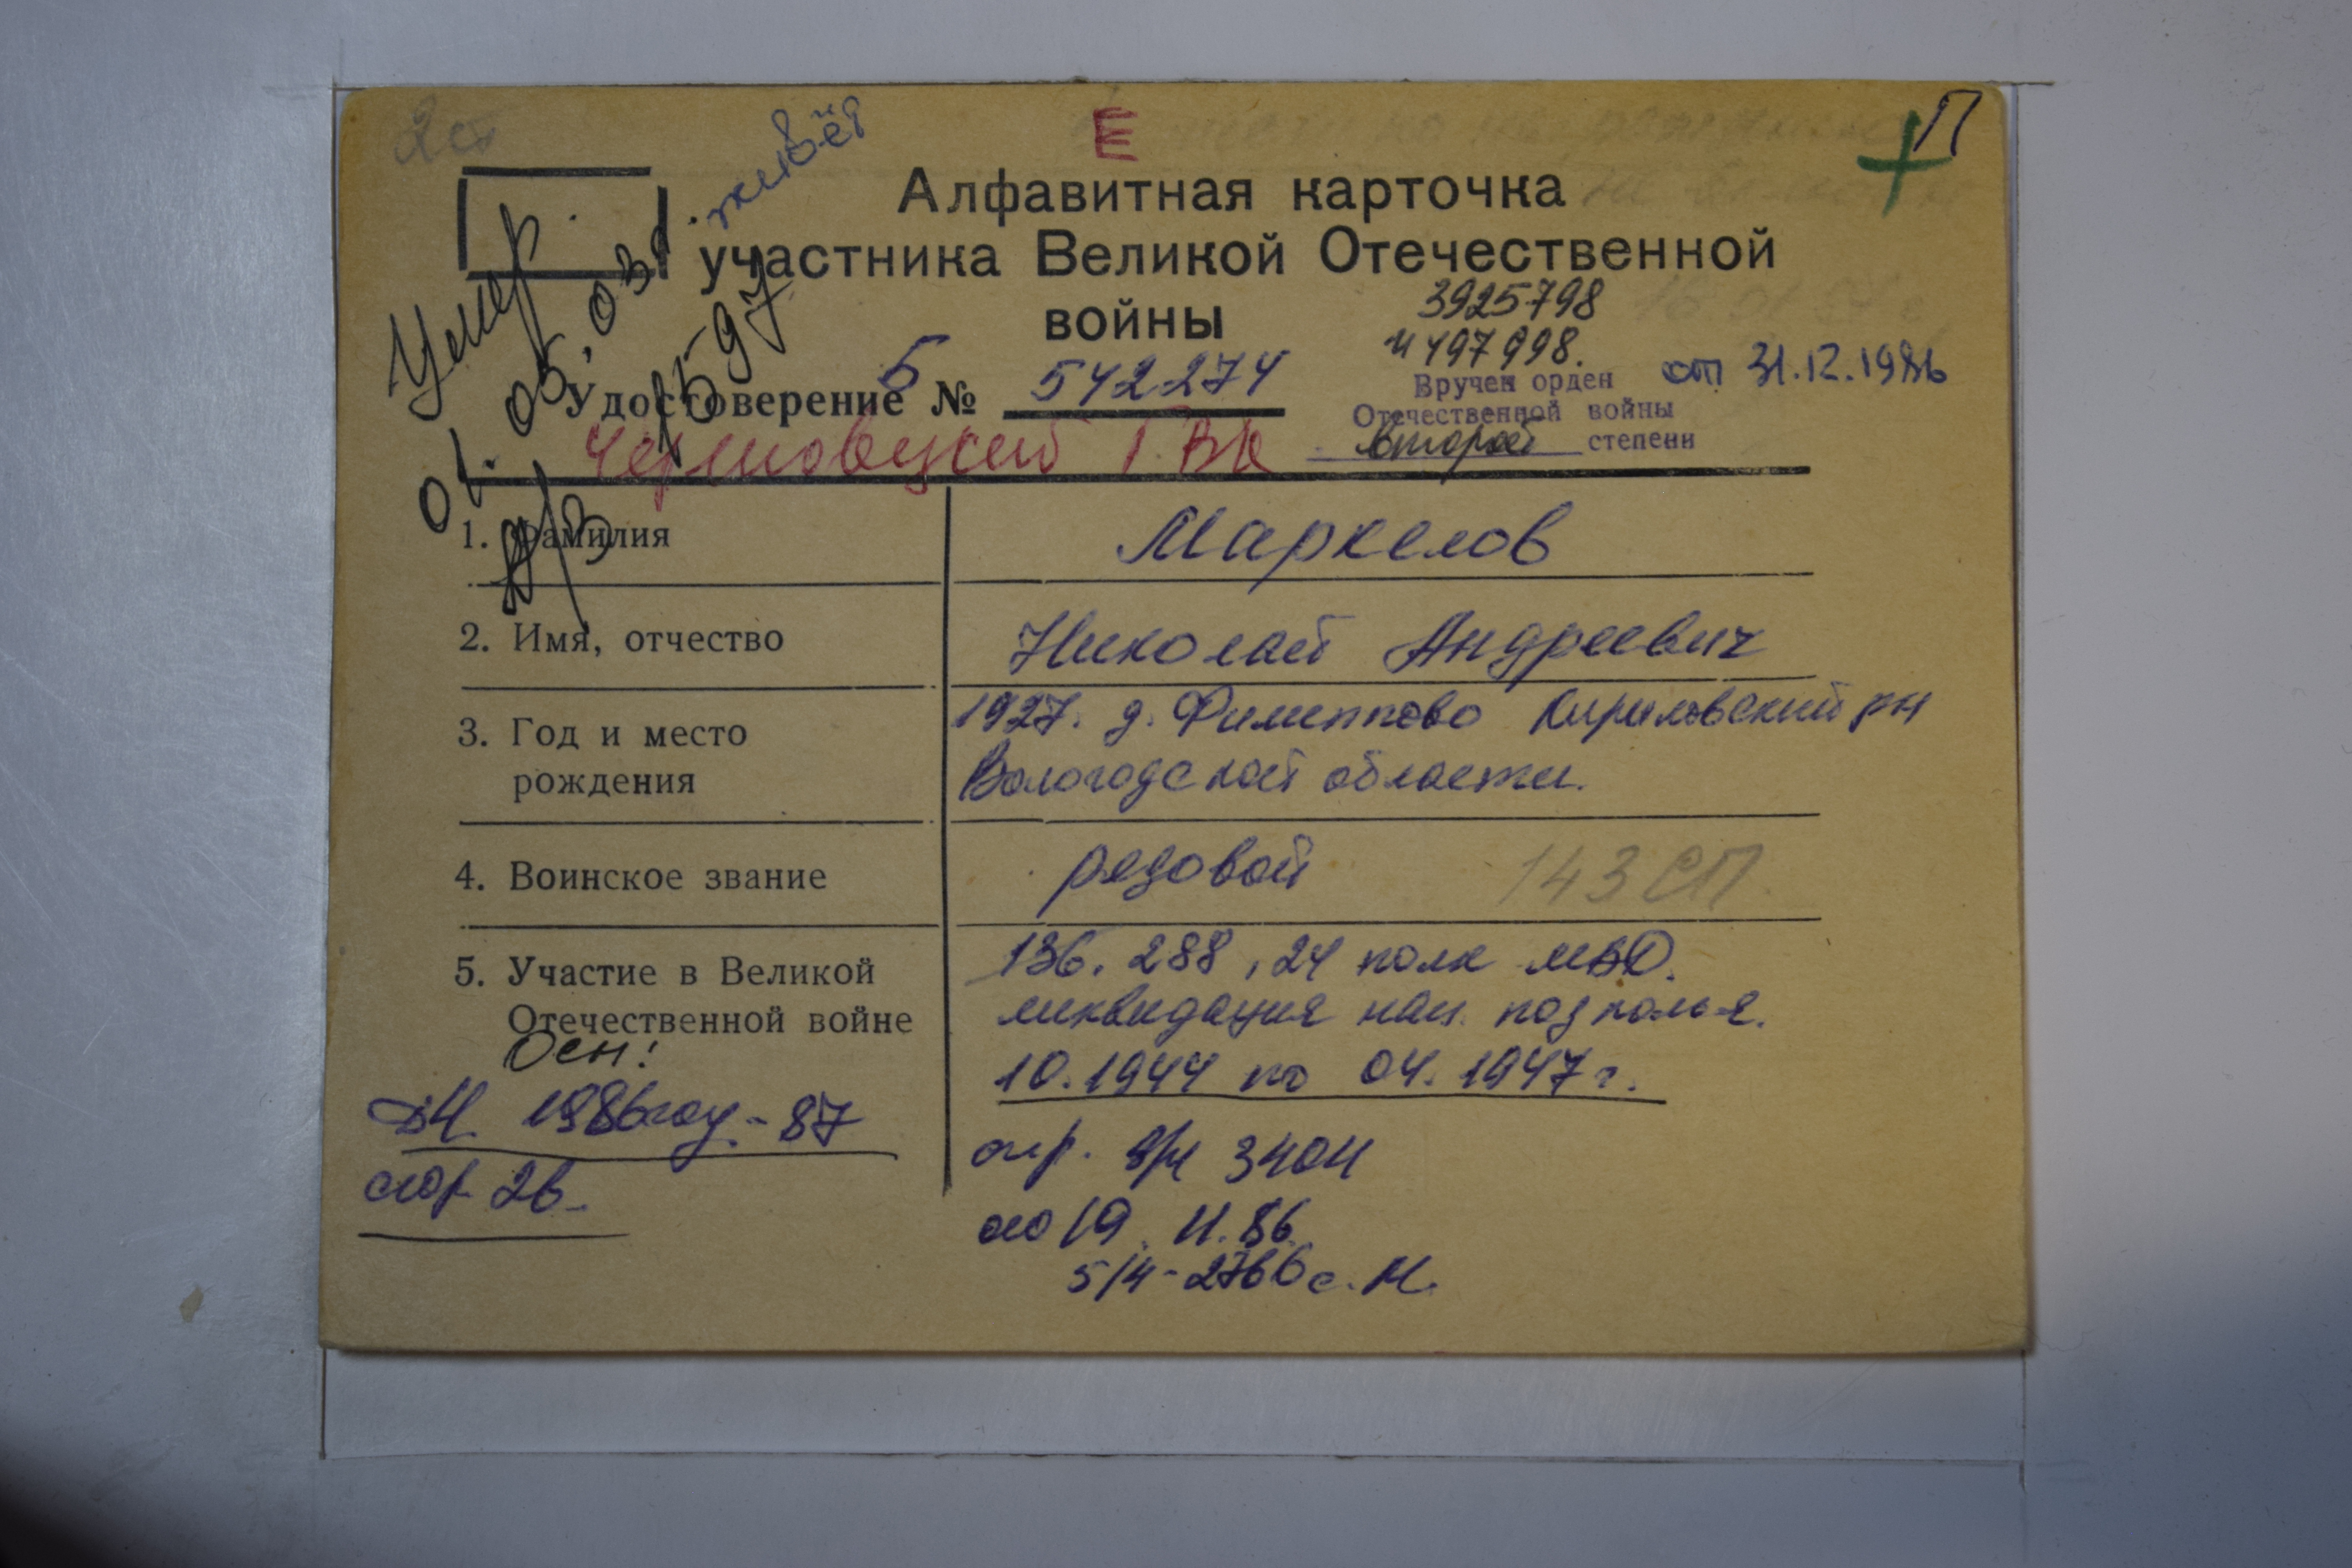 Е
П
живёт
Алфавитная карточка
участника Великой Отечественной
войны
3925798
от 31.12.1986
Удостоверение Б № 542274
Вручен орден
Отечественной войны
второй степени
Умер
01.05.03г.
Черновецкий ГВК
1. Фамилия Маркелов
2. Имя, отчество Николай Андреевич
3. Год и место
рождения
1927. д. Филиппово Кириловский рн
Вологодской области.
4. Воинское звание рядовой 143 СП
5. Участие в Великой
Отечественной войне
136. 288, 24 полк МВД.
ликвидация нац. подполья.
10.1944 по 04.1947 г.
Осн:
1986 году - 87
стр 26.
3404
19.11.86